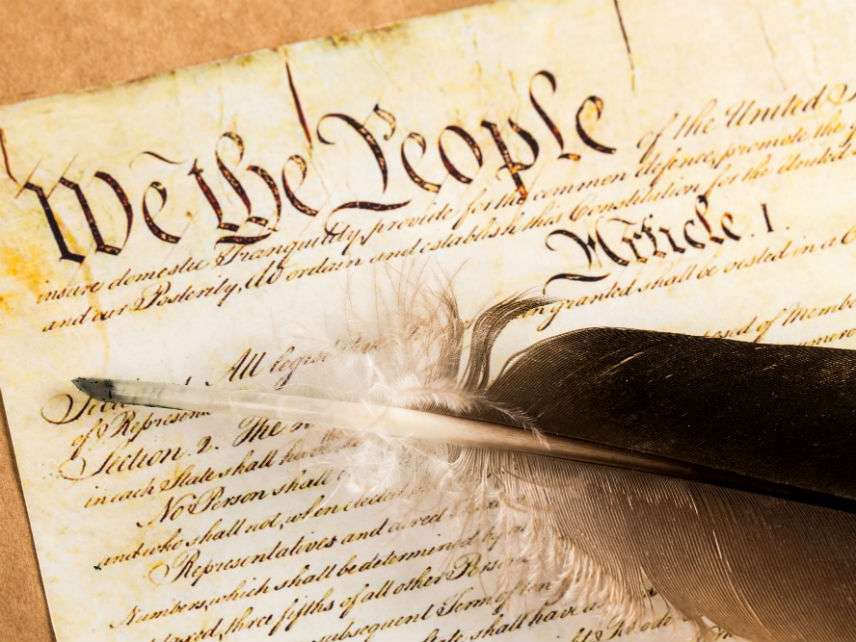 We the People of the United
insure domestic Tranquility, provide for the common defence, promote the
and our Posterity, do ordain and establish this Constitution for the United
Article. I.
granted shall be vested in a
All
of Members
of Represen
Section. 2. The
in each State shall have
No Person shall
and who shall not, when elected
Representatives and direct
Numbers, which shall be determined by
three fifths of all other Persons
subsequent Term of ten
State shall have